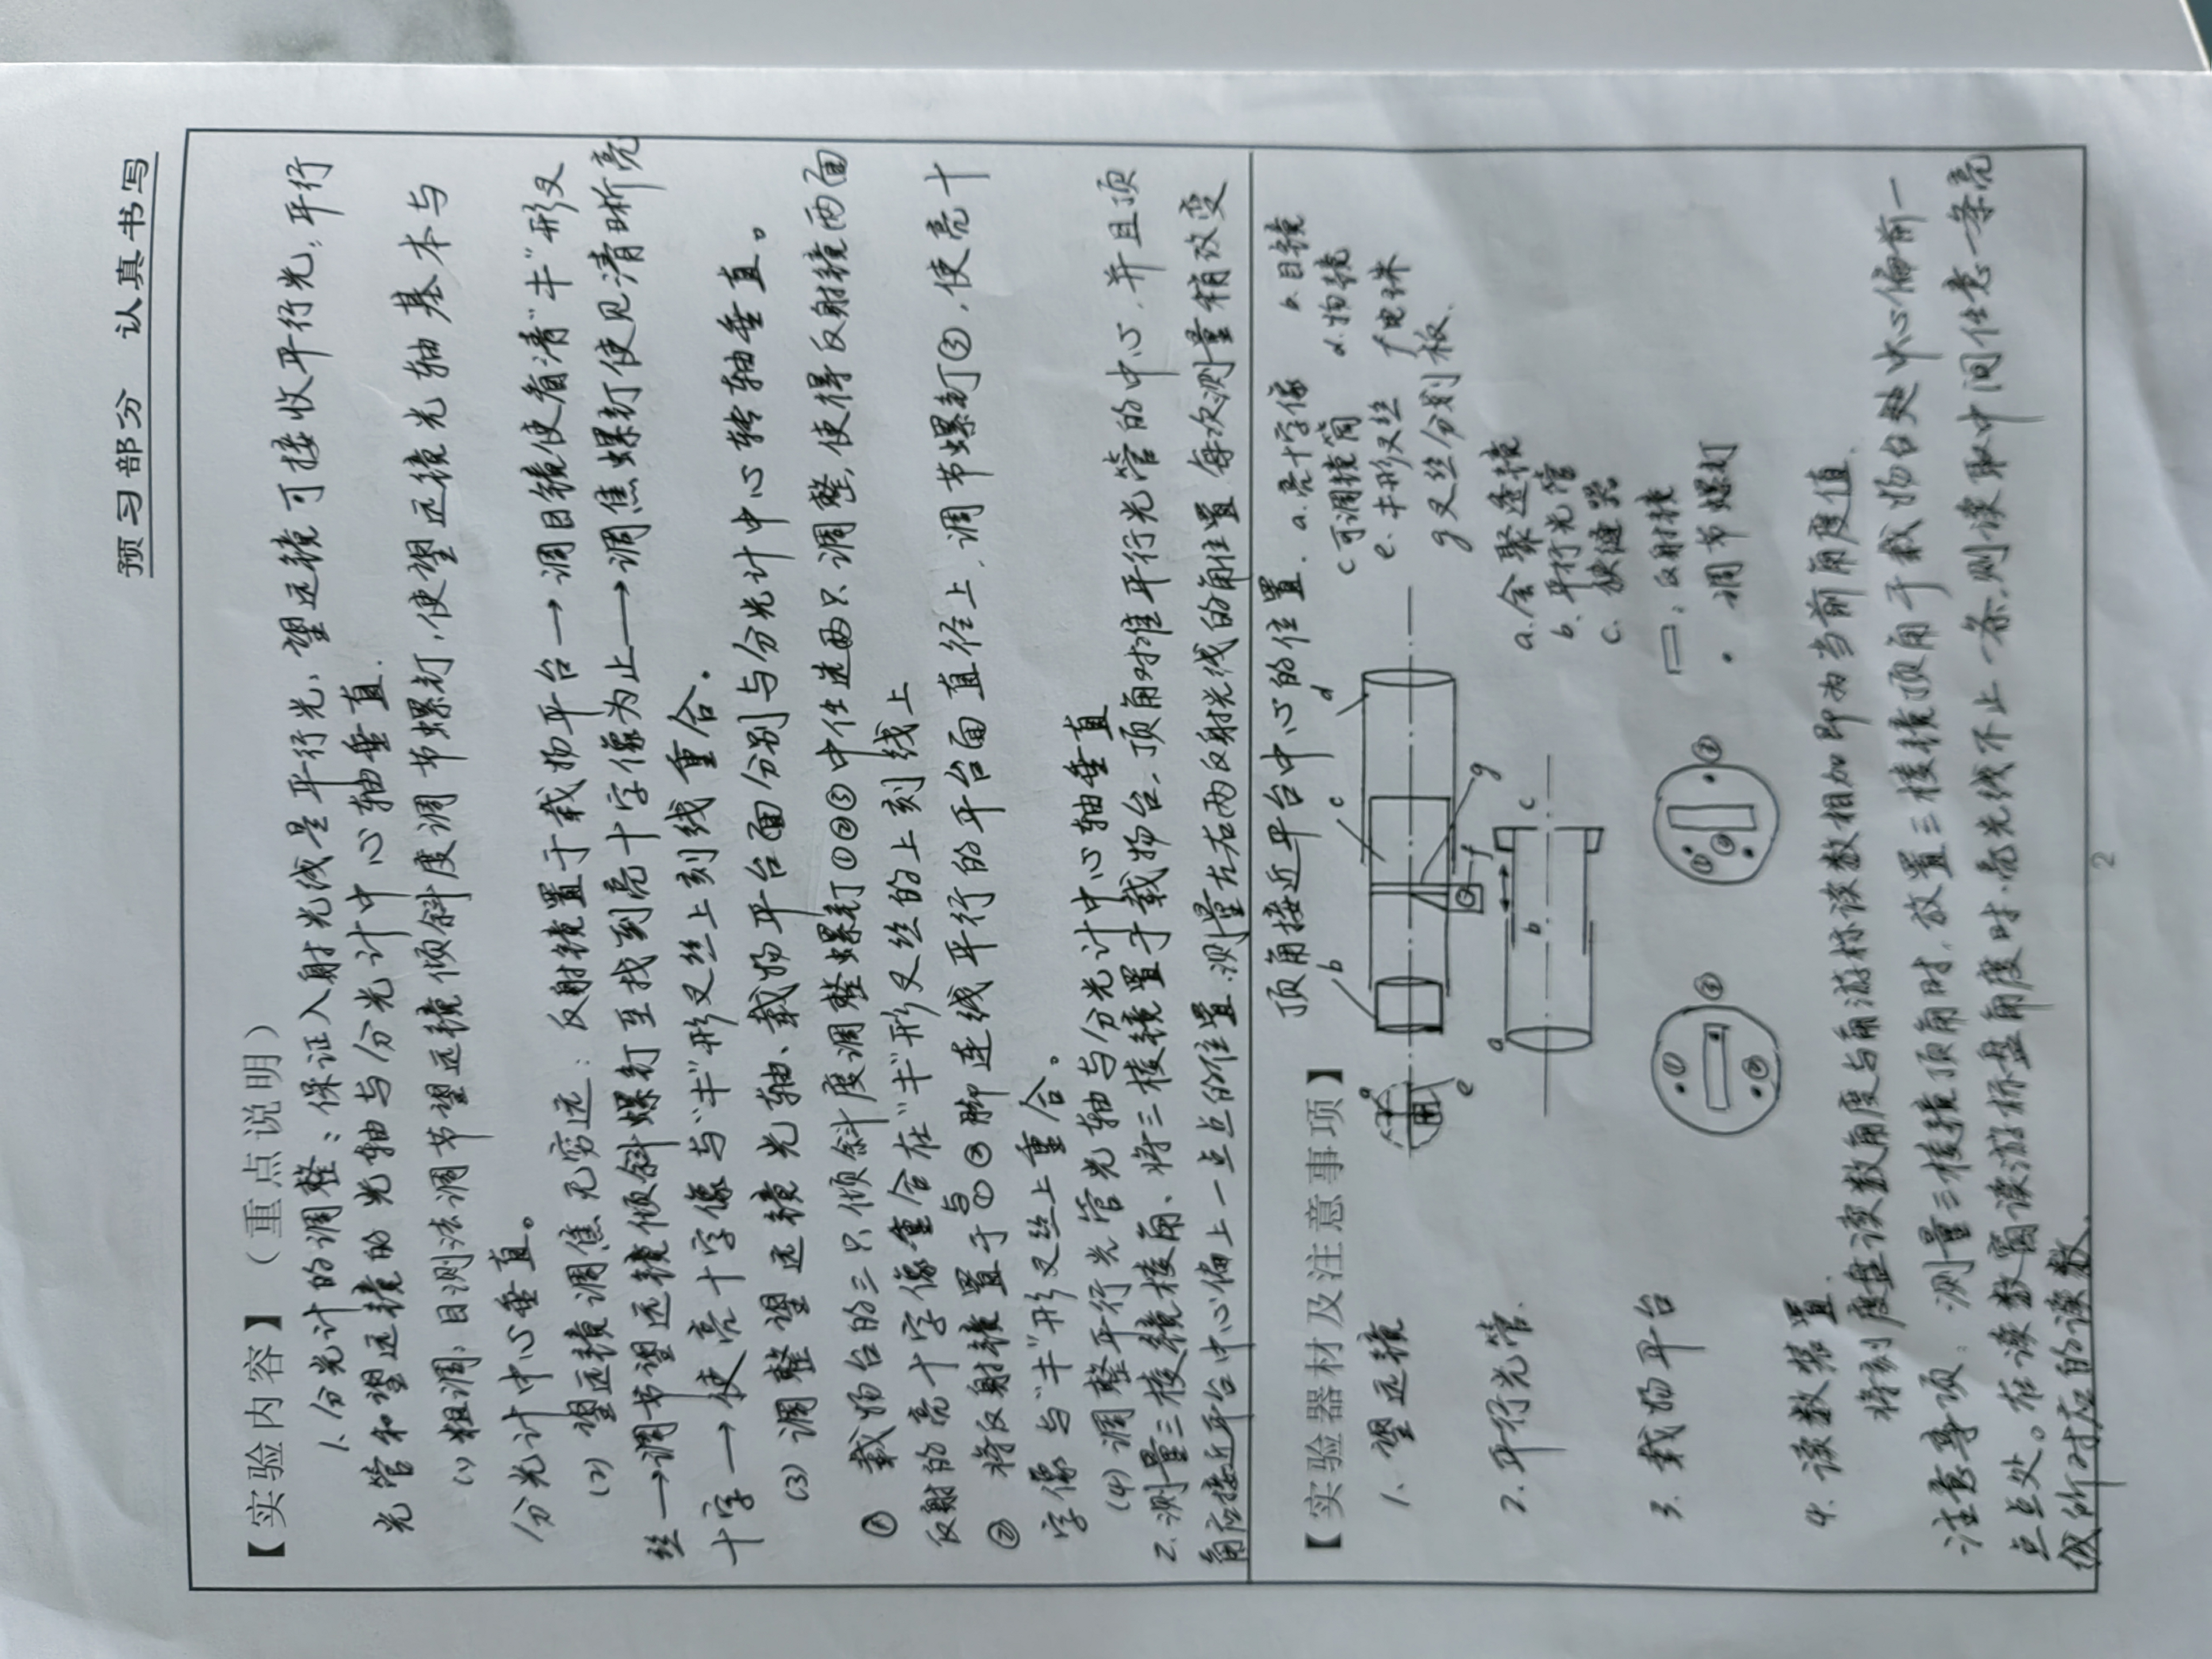 预习部分 认真书写
【实验内容】（重点说明）
1.分光计的调整：保证入射光线是平行光、望远镜可接收平行光，平行
光管和望远镜的光轴与分光计中心轴垂直.
(1)粗调：目测法调节望远镜倾斜度调节螺钉，使望远镜光轴基本与
分光计中心垂直。
(2) 望远镜调焦无穷远：反射镜置于载物平台→调目镜使看清"丰"形叉
丝→调节望远镜倾斜螺钉至找到亮十字像为止→调焦螺钉使见清晰亮
十字→使亮十字像与"丰"形叉丝上刻线重合.
(3) 调整望远镜光轴、载物平台面分别与分光计中心转轴垂直。
① 载物台的三只倾斜度调整螺钉①②③中任选两只调整,使得反射镜两面
反射的亮十字像重合在"丰"形叉丝的上刻线上
② 将反射镜置于与①②脚连线平行的平台面直径上，调节螺钉③,使亮十
字像与"丰"形叉丝上重合。
(4) 调整平行光管光轴与分光计中心轴垂直
2.测量三棱镜棱角、将三棱镜置于载物台，顶角对准平行光管的中心，并且顶
角应接近平台中心偏上一点点的位置.测量左右两反射光线的角位置 每次测量稍改变
顶角接近平台中心的位置.
【实验器材及注意事项】
1. 望远镜
a b c d e f g
a.亮十字像 b.目镜
c可调镜筒 d.物镜
e.丰形叉丝 f电珠
g叉丝分划板.
2.平行光管.
a b c
a.会聚透镜
b.平行光管
c. 狭缝
3.载物平台
① ② ③
① ② ③
：反射镜
· 调节螺钉
4. 读数装置.
将刻度盘读数角度与角游标读数相加即为当前角度值.
注意事项：测量三棱镜顶角时，放置三棱镜顶角于载物台处中心偏前一
点点处。在读数窗读游标盘角度时.亮光线不止一条,则读取中间任意一条亮
线所对应的读数.
2